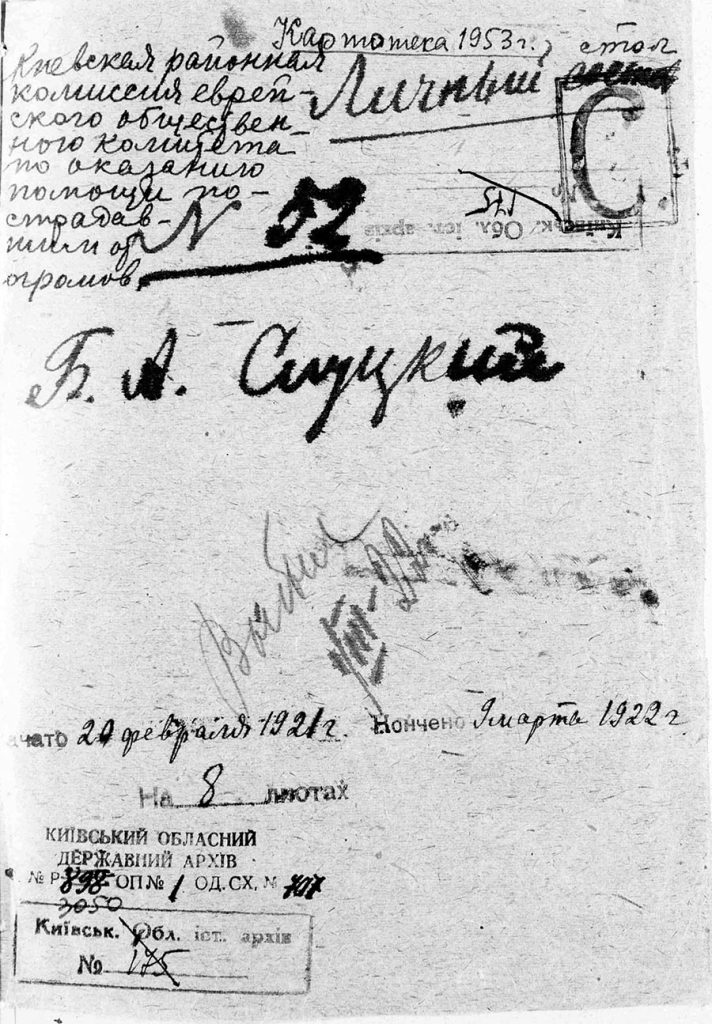 Картотека 1953 г., стол
Киевская районная
комиссия еврей-
ского обществен-
ного комитета
по оказанию
помощи по-
страдав-
шим от
погромов.
Личный состав
С
Київськ. Обл. іст. архів
175
N 52
Б. А. Слуцкий
Выбыл
VIII-22
Начато 20 февраля 1921 г. Кончено 9 марта 1922 г.
На 8 листах
КИЇВСЬКИЙ ОБЛАСНИЙ
ДЕРЖАВНИЙ АРХІВ
№ Р-898 ОП № 1 ОД. СХ. № 707
3050
Київськ. Обл. іст. архів
№ 175